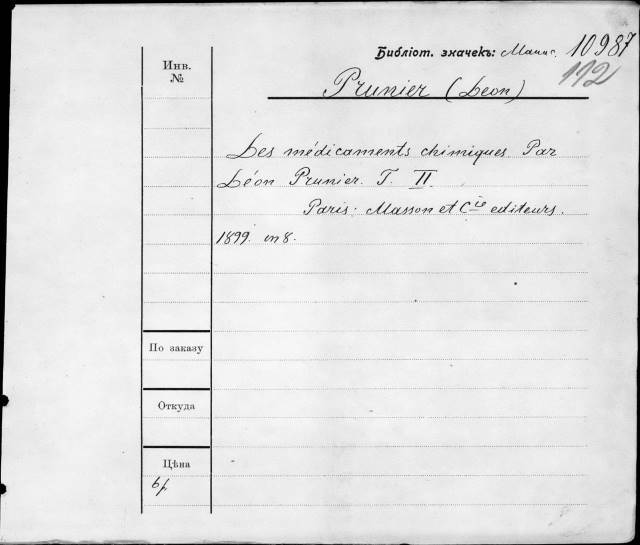 Библіот. значекъ: 10987
112
Инв.
№
Prunier (Leon)
Les médicaments chimiques. Par
Léon Prunier. T. II.
Paris: Masson et Cie editeurs.
1899. in 8.
По заказу
Откуда
Цѣна
6р